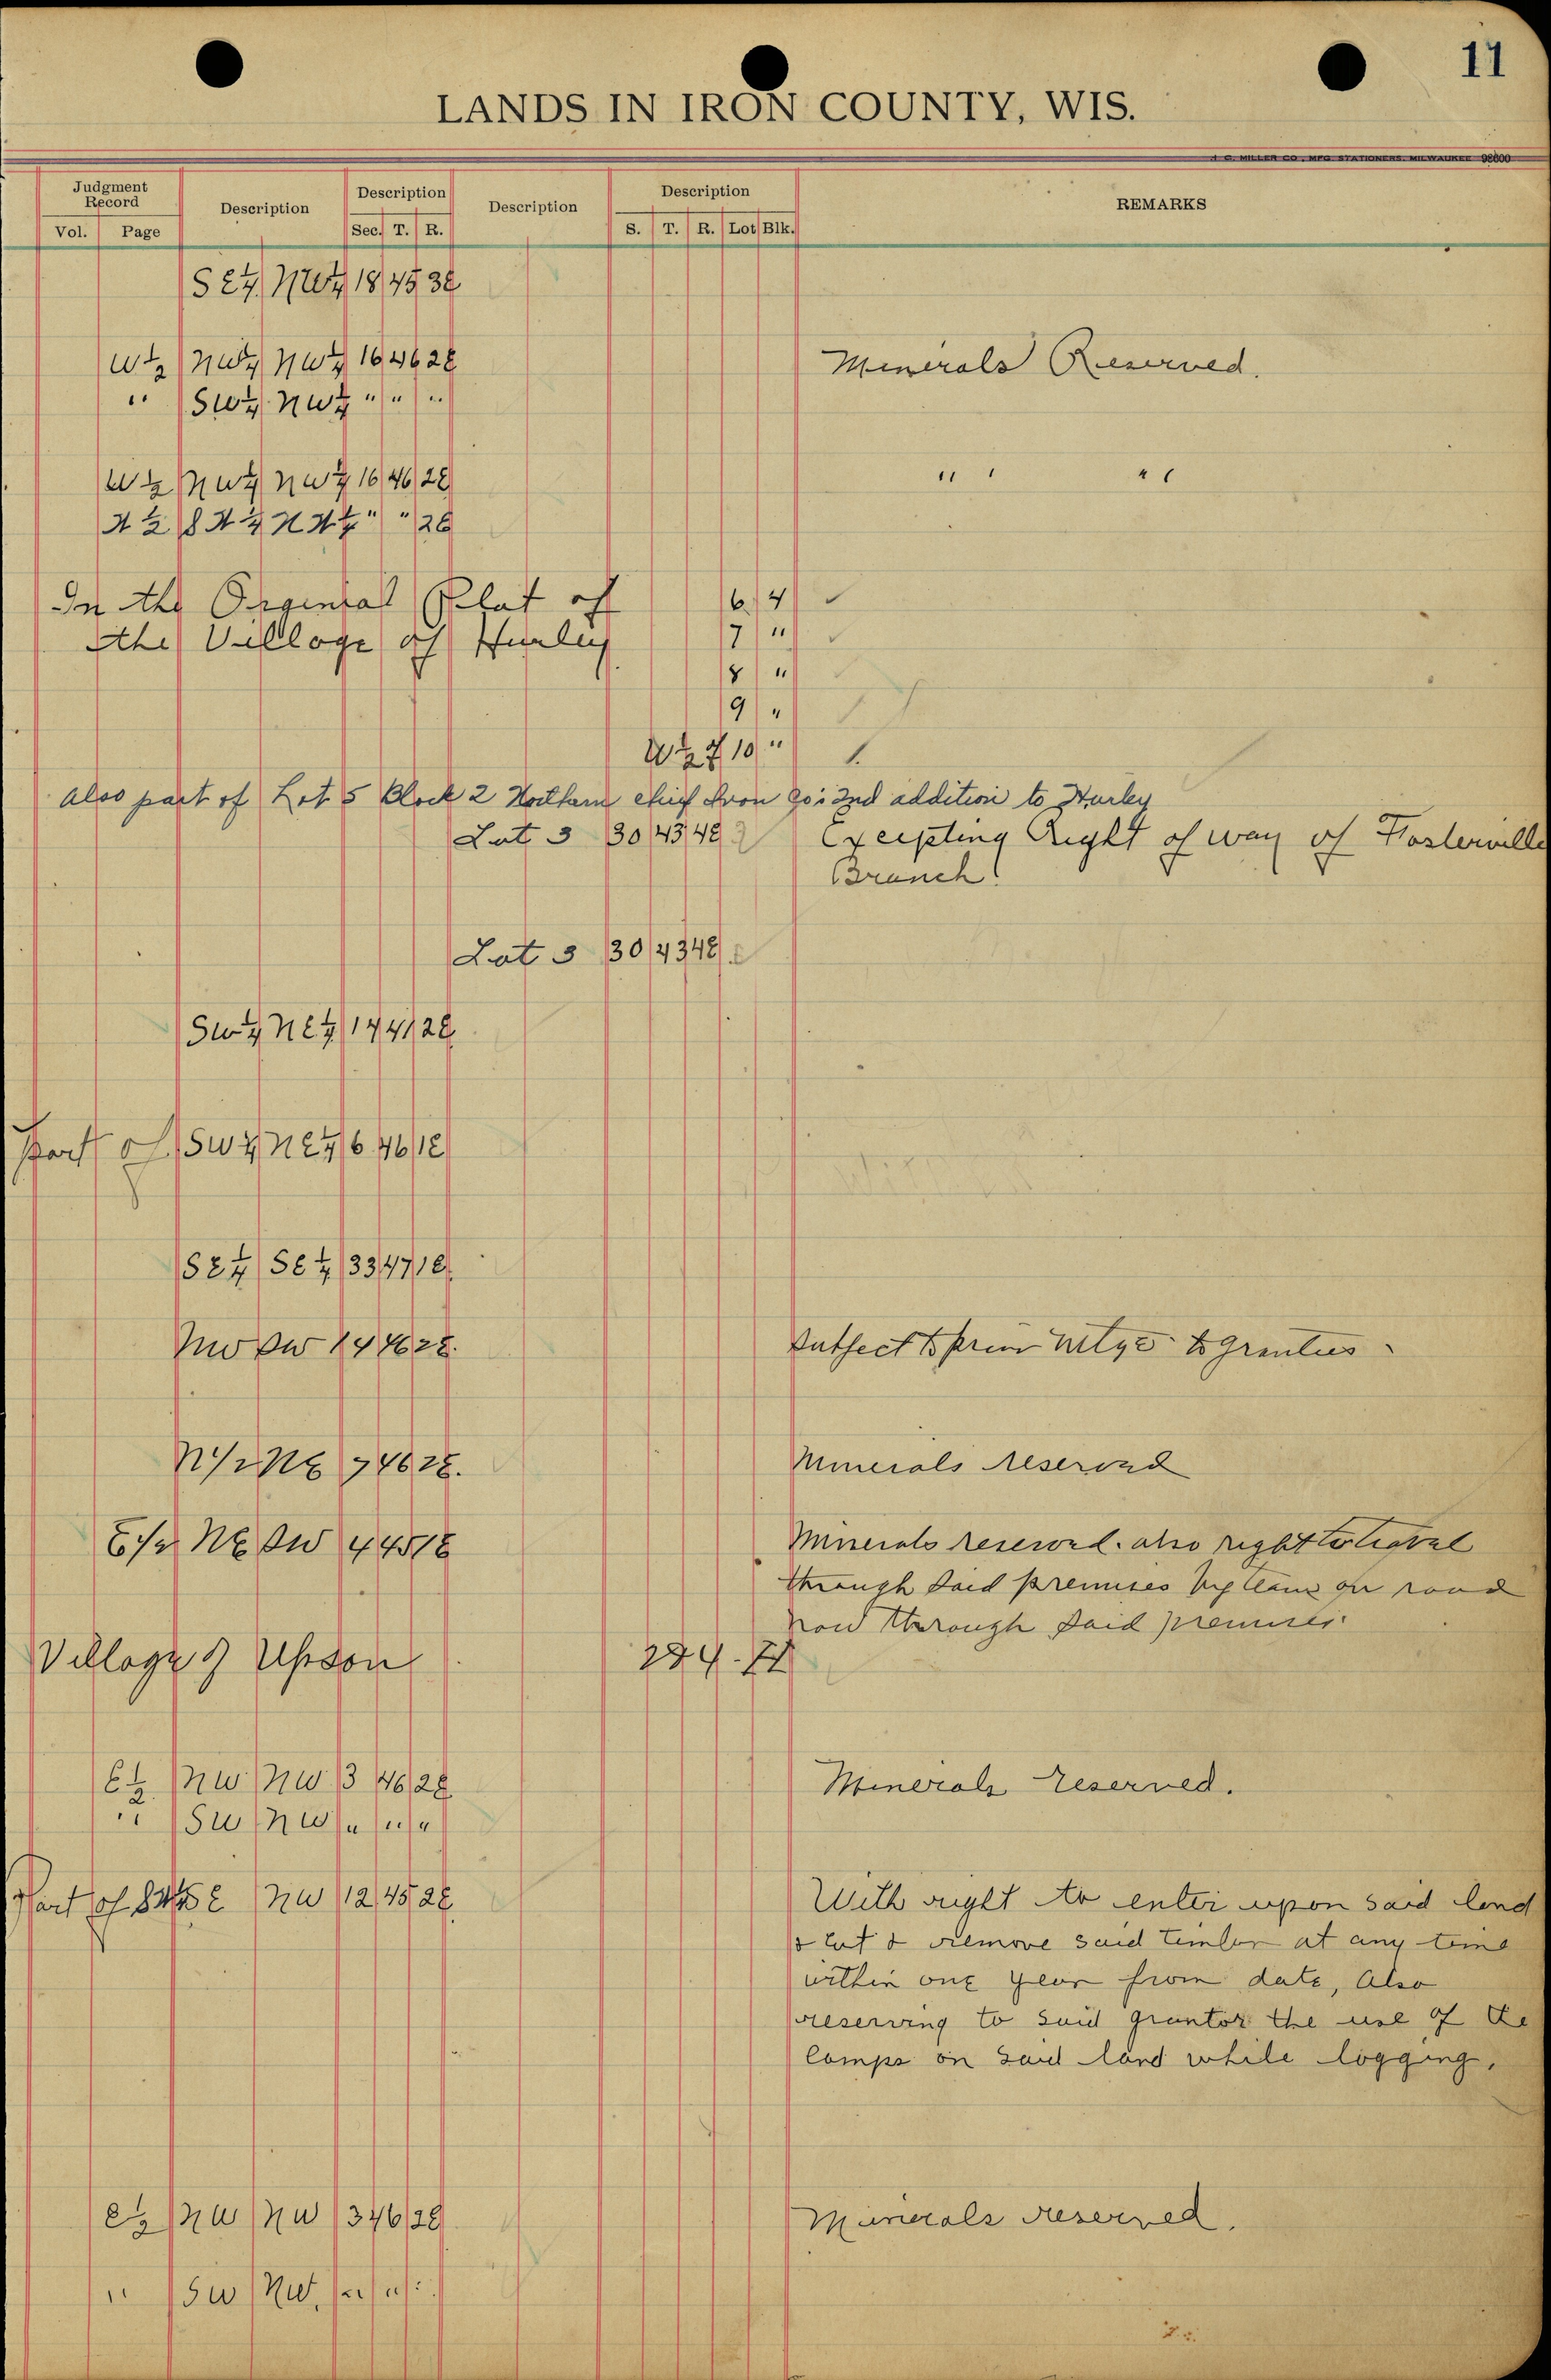 11
LANDS IN IRON COUNTY, WIS.
J. C. MILLER CO., MFG. STATIONERS. MILWAUKEE 98600
Judgment Record Description Description Description Description REMARKS
Vol. Page Sec. T. R. S. T. R. Lot Blk.
SE¼ NW¼ 18 45 3E
W½ NW¼ NW¼ 16 46 2E Minerals Reserved.
" SW¼ NW¼ " " "
W½ NW¼ NW¼ 16 46 2E " "
" " 2E
In the Orgenial Plat of 6 4
the Village of Hurley 7 "
8 "
9 "
W½ of 10 "
Also part of Lot 5 Block 2 Northern Chief Iron Co's 2nd addition to Hurley
Lot 3 30 43 4E Excepting Right of way of Fosterville
Branch.
Lot 3 30 43 4E
SW¼ NE¼ 14 41 2E
Part of SW¼ NE¼ 6 46 1E
SE¼ SE¼ 33 47 1E
NW SW 14 46 2E. Subject to prior mtge to Grantees
N1/2 NE 7 46 2E. Minerals reserved
E1/2 NE SW 4 45 1E Minerals reserved. also right to
through said premises by on road
now through said premises
Village of Upson
E½ NW NW 3 46 2E Minerals reserved.
" SW NW " " "
Part of NW 12 45 2E With right to enter upon said land
& cut & remove said timber at any time
within one year from date, Also
reserving to said grantor the use of the
Camps on said land while logging.
E½ NW NW 3 46 2E Minerals reserved.
" SW NW. " "